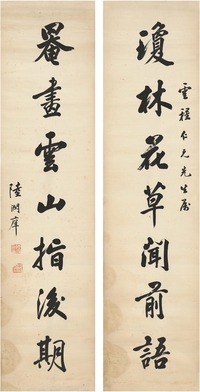 瓊林花草聞前語
雲程仁兄先生屬
罨畫雲山指後期
陸潤庠